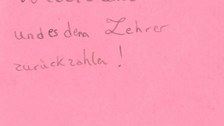 und es dem Lehrer
zurückzahlen!